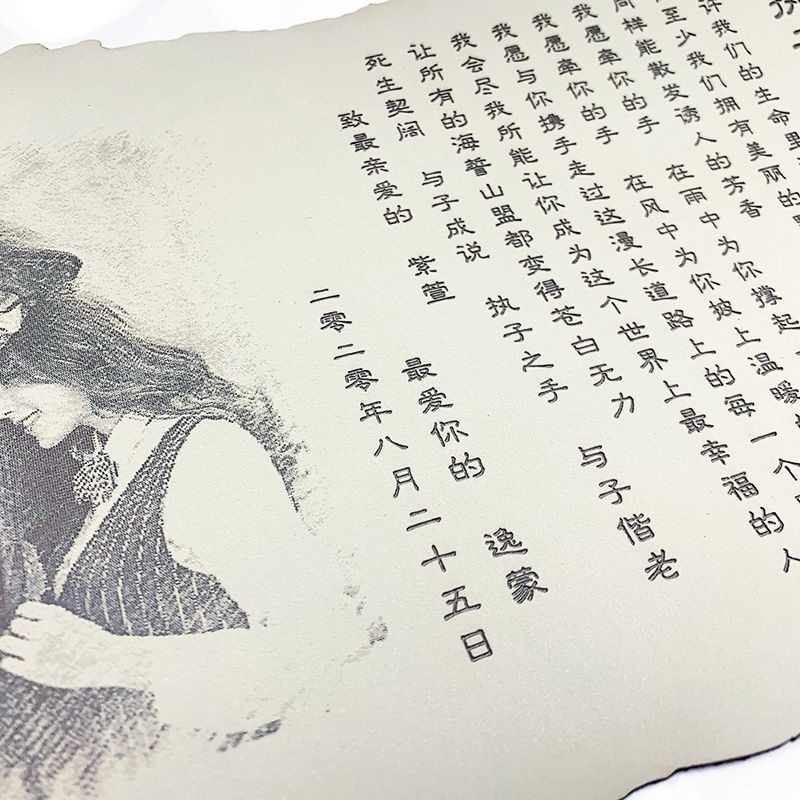 许我们的生命里
至少我们拥有美丽的
同样能散发诱人的芳香
我愿牵你的手 在雨中为你撑起
我愿牵你的手 在风中为你披上温暖的
我愿与你携手走过这漫长道路上的每一个
我会尽我所能让你成为这个世界上最幸福的人
让所有的海誓山盟都变得苍白无力
死生契阔 与子成说 执子之手 与子偕老
致最亲爱的 紫萱 最爱你的 逸蒙
二零二零年八月二十五日